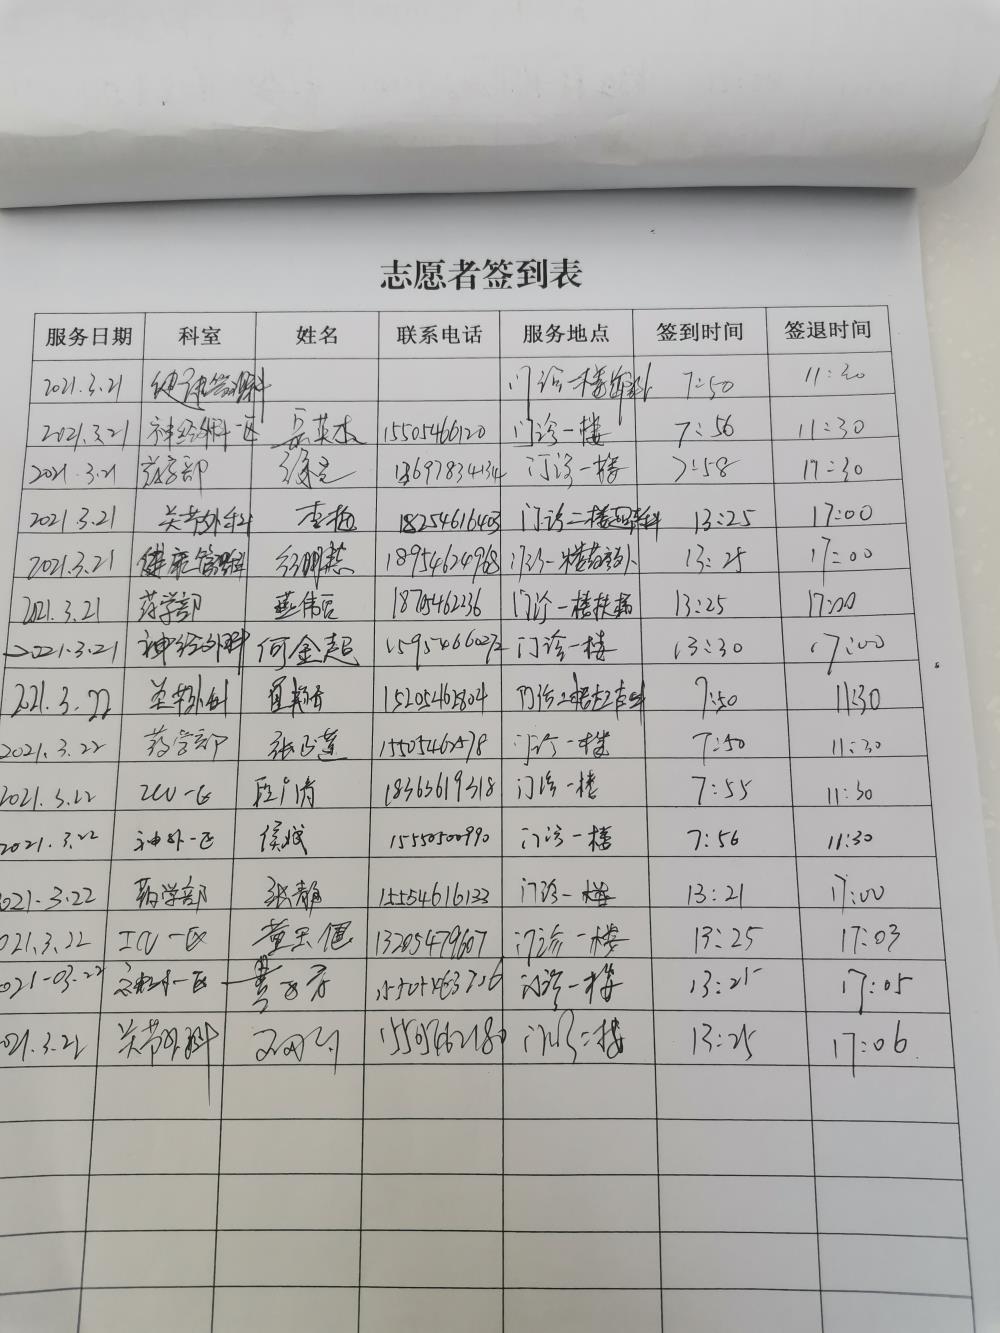 志愿者签到表
服务日期 科室 姓名 联系电话 服务地点 签到时间 签退时间
2021.3.21 健康管理科 门诊一楼 7:50 11:30
2021.3.21 神经外科一区 岳英杰 15505466120 门诊一楼 7:56 11:30
2021.3.21 药学部 徐 门诊一楼 7:58 17:30
2021.3.21 关节外科 李梅 18254616403 门诊二楼 13:25 17:00
2021.3.21 健康管理科 18954624968 门诊一楼 13:25 17:00
2021.3.21 药学部 燕伟 18705462236 门诊一楼扶梯 13:25 17:00
2021.3.21 神经外科 何金超 15954660272 门诊一楼 13:30 17:00
2021.3.22 关节外科 15205462804 门诊二楼 7:50 11:30
2021.3.22 药学部 张 15505462578 门诊一楼 7:50 11:30
2021.3.22 ICU一区 段 18365619318 门诊一楼 7:55 11:30
2021.3.22 神外一区 侯 15550500990 门诊一楼 7:56 11:30
2021.3.22 药学部 张静 15554616133 门诊一楼 13:21 17:00
2021.3.22 ICU一区 黄 13205479607 门诊一楼 13:25 17:03
2021-03.22 一区 门诊一楼 13:25 17:05
2021.3.22 关节外科 15505462180 门诊二楼 13:25 17:06